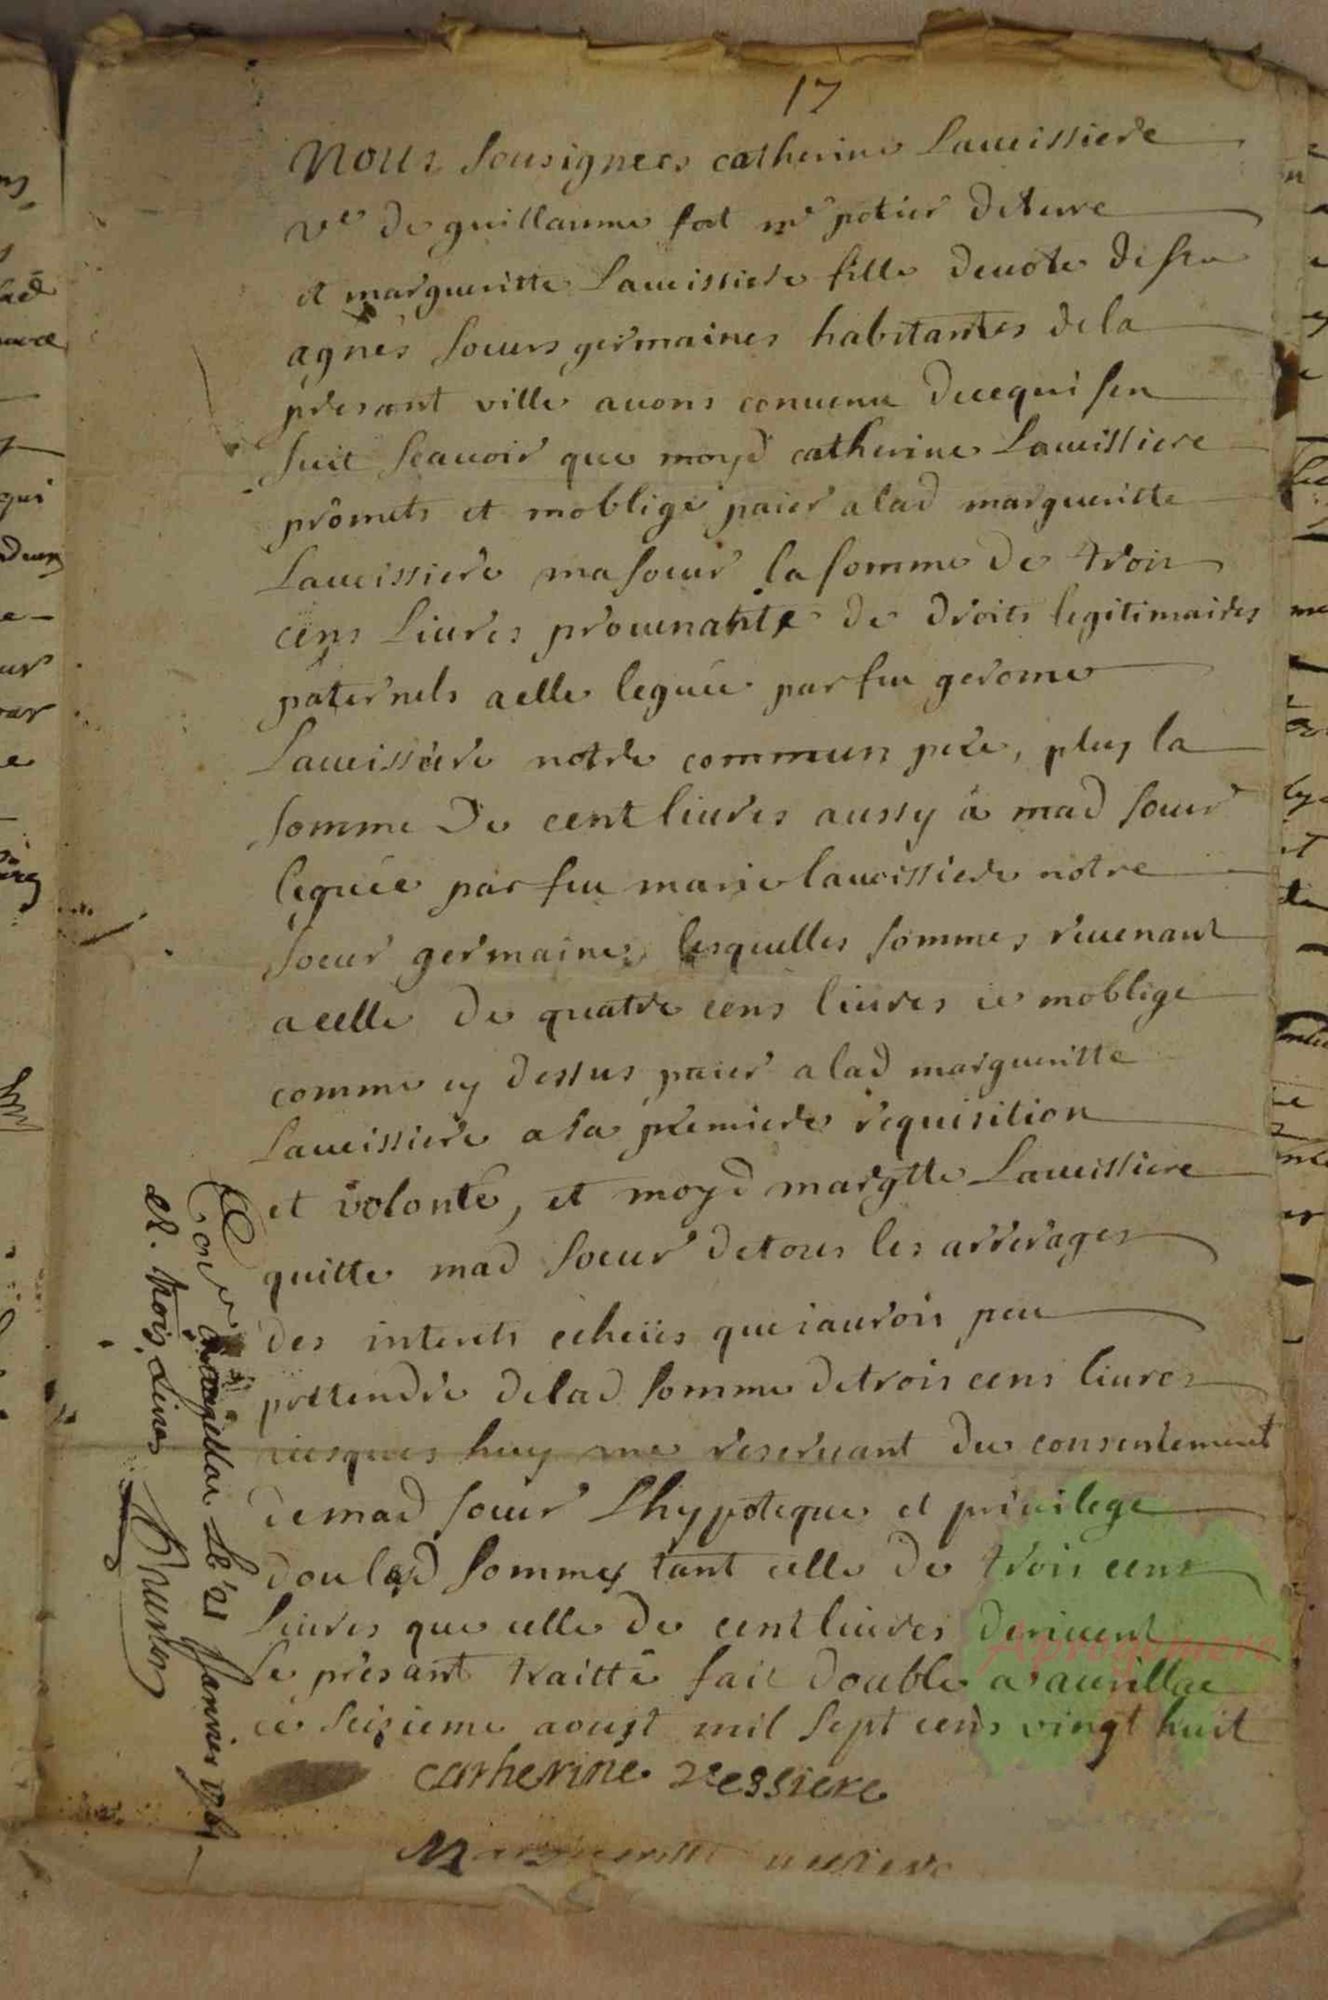 17
Nous sousignees catherine Laueissiere
ve de guillaume fort me potier deterre
et margueritte Laueissiere fille deuote de ste
agnès soeurs germaines habitantes dela
presant ville auons conuenu decequi sen
suit scauoir que moyd catherine Laueissiere
promets et moblige paier alad margueritte
Laueissiere masoeur la somme de trois
cens Liures prouenante de droits legitimaires
paternels aelle leguée parfeu gerome
Laueissiere notre commun pere, plus la
somme De cent liures aussy a mad soeur
leguée par feu marie laueissiere notre
soeur germaine, lesquelles sommes reuenant
acelle de quatre cens liures ie moblige
comme cy dessus paier alad margueritte
Laueissiere a sa premiere requisition
et volonté, et moyd margtte Laueissiere
quitte mad soeur detous les arrerages
des interets echeües queiaurois peu
prettendre delad somme detrois cens liures
iusques huy me reseruant du consentement
demad soeur Lhypoteque et priuilege
doulesd sommes tant celle de trois cens
liures que celle de cent liures deriuent
le presant traitté fait double a aurillac
ce seizieme aoust mil sept cens vingt huit
catherine Veissiere
Margueritte
Le 21 Janvier
R. trois Livres
Aprogemere